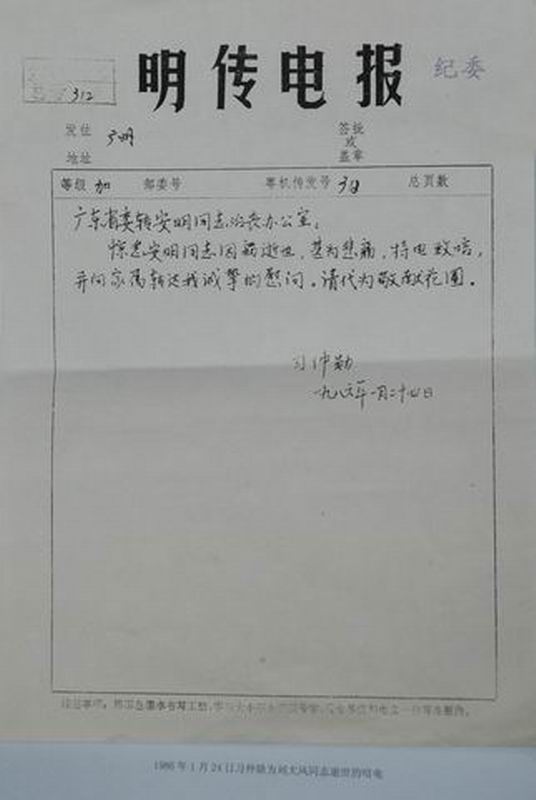 明传电报
纪委
312
发往 广州
地址
签批
或
盖章
等级 加 部委号 粤机传发号 38 总页数
广东省委转安明同志治丧办公室：
惊悉安明同志因病逝世，甚为悲痛，特电致唁，
并向家属转达我诚挚的慰问。请代为敬献花圈。
习仲勋
一九八六年一月二十四日
注意事项：
1986年1月24日习仲勋为刘大风同志逝世的唁电